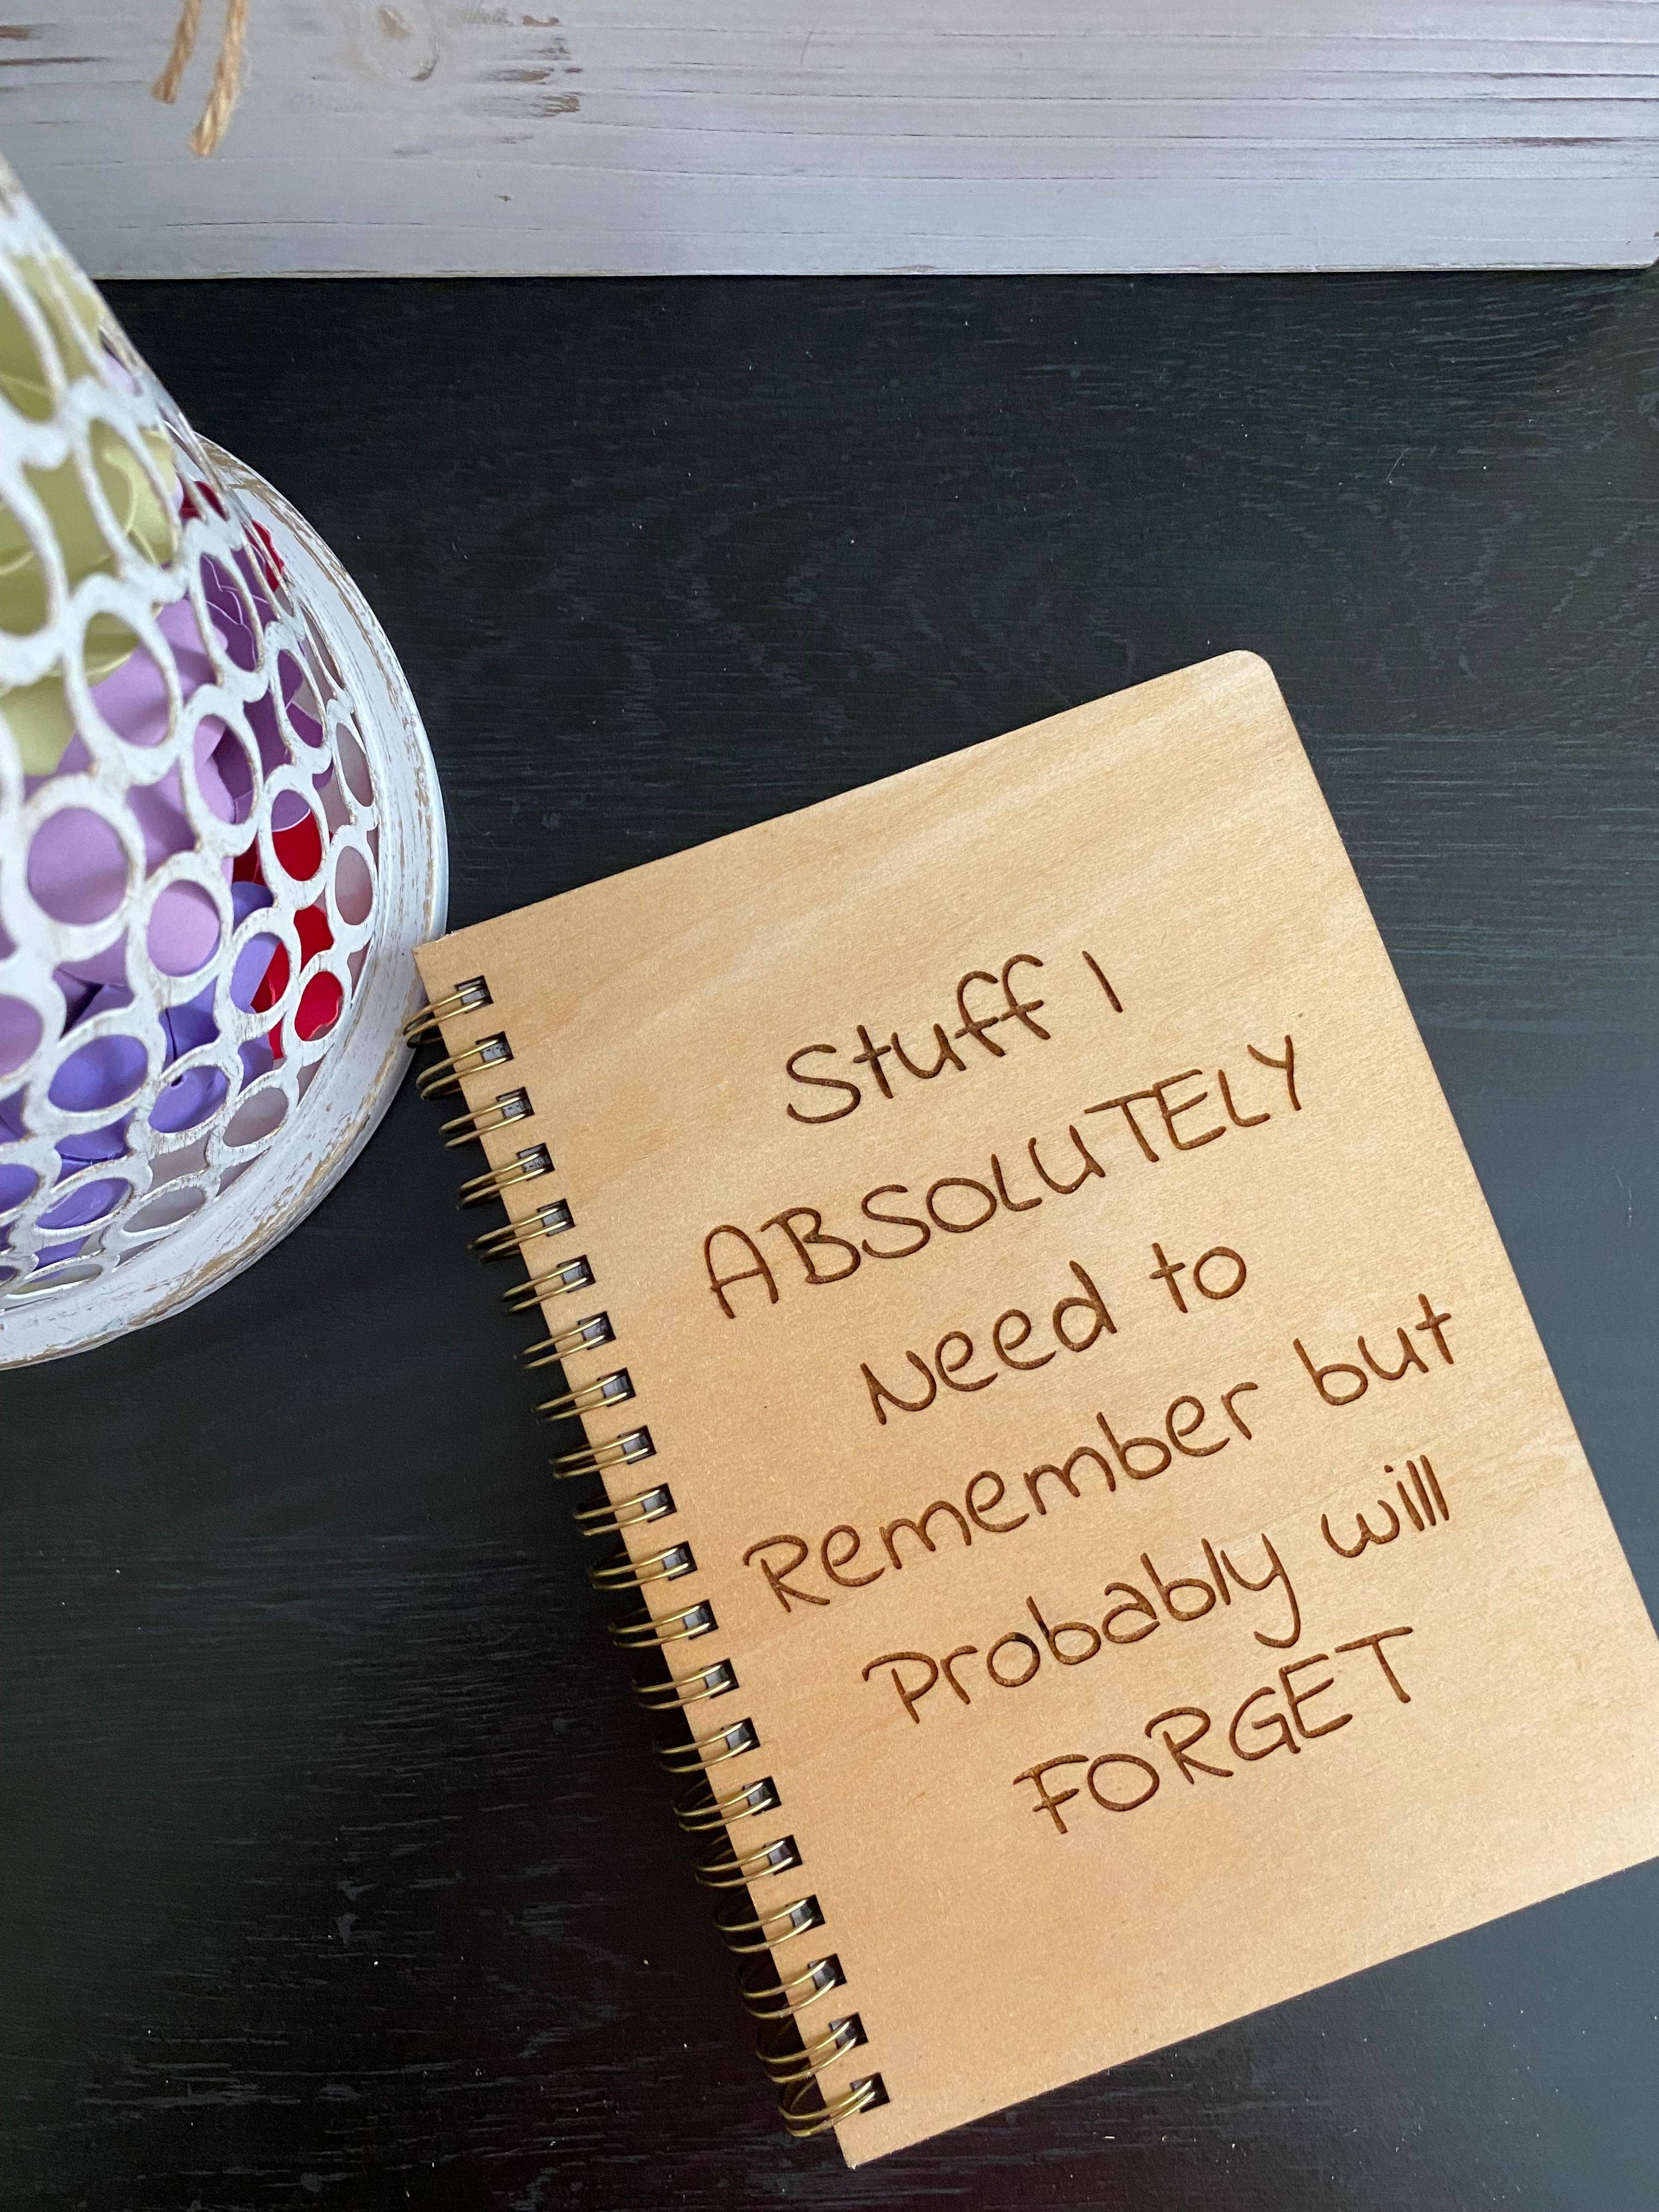 Stuff I
ABSOLUTELY
Need to
Remember but
Probably will
FORGET